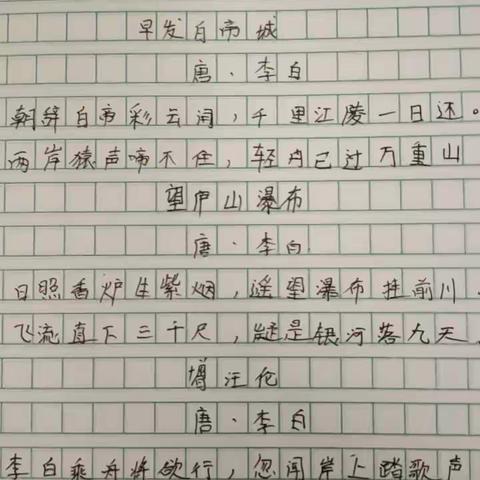 早发白帝城
唐·李白
朝辞白帝彩云间，千里江陵一日还。
两岸猿声啼不住，轻舟已过万重山
望庐山瀑布
唐·李白
日照香炉生紫烟，遥望瀑布挂前川．
飞流直下三千尺，疑是银河落九天．
赠汪伦
唐·李白
李白乘舟将欲行，忽闻岸上踏歌声